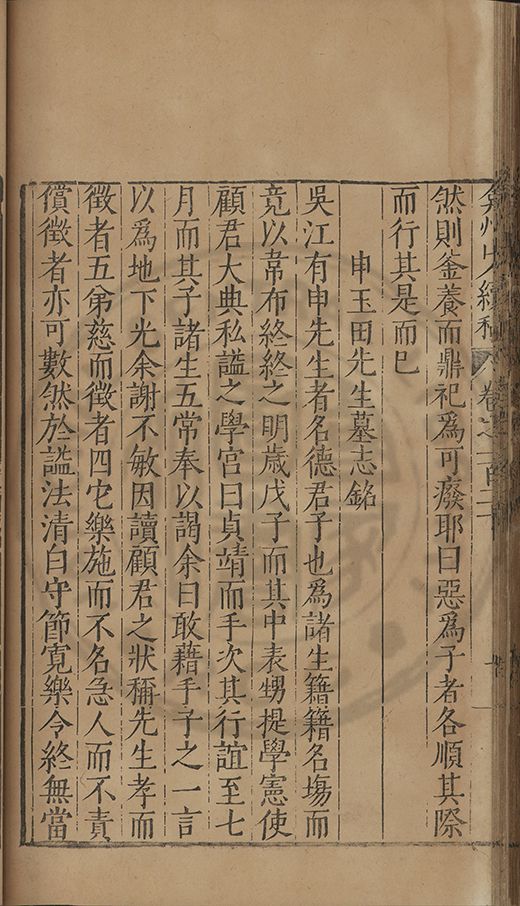 弇州山人續稿 卷之一百二十
然則釜養而鼎祀爲可廢耶曰惡爲子者各順其際
而行其是而已
申玉田先生墓志銘
吳江有申先生者名德君子也爲諸生籍籍名場而
竟以韋布終終之明歲戊子而其中表甥提學憲使
顧君大典私謚之學宮曰貞靖而手次其行誼至七
月而其子諸生五常奉以謁余曰敢藉手子之一言
以爲地下光余謝不敏因讀顧君之狀稱先生孝而
徵者五弟慈而徵者四它樂施而不名急人而不責
償徵者亦可數然於謚法清白守節寬樂令終無當